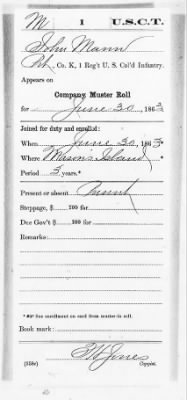 M 1 U.S.C.T.
John Mann
Pvt., Co. K, 1 Reg't U. S. Col'd Infantry.
Appears on
Company Muster Roll
for June 30, 1863
Joined for duty and enrolled:
When June 30, 1863
Where Mason's Island
Period 3 years.*
Present or absent
Stoppage, $ 100 for
Due Gov't $ 100 for
Remarks:
* See enrollment on card from muster-in roll.
Book mark:
(358c) Jones Copyist.